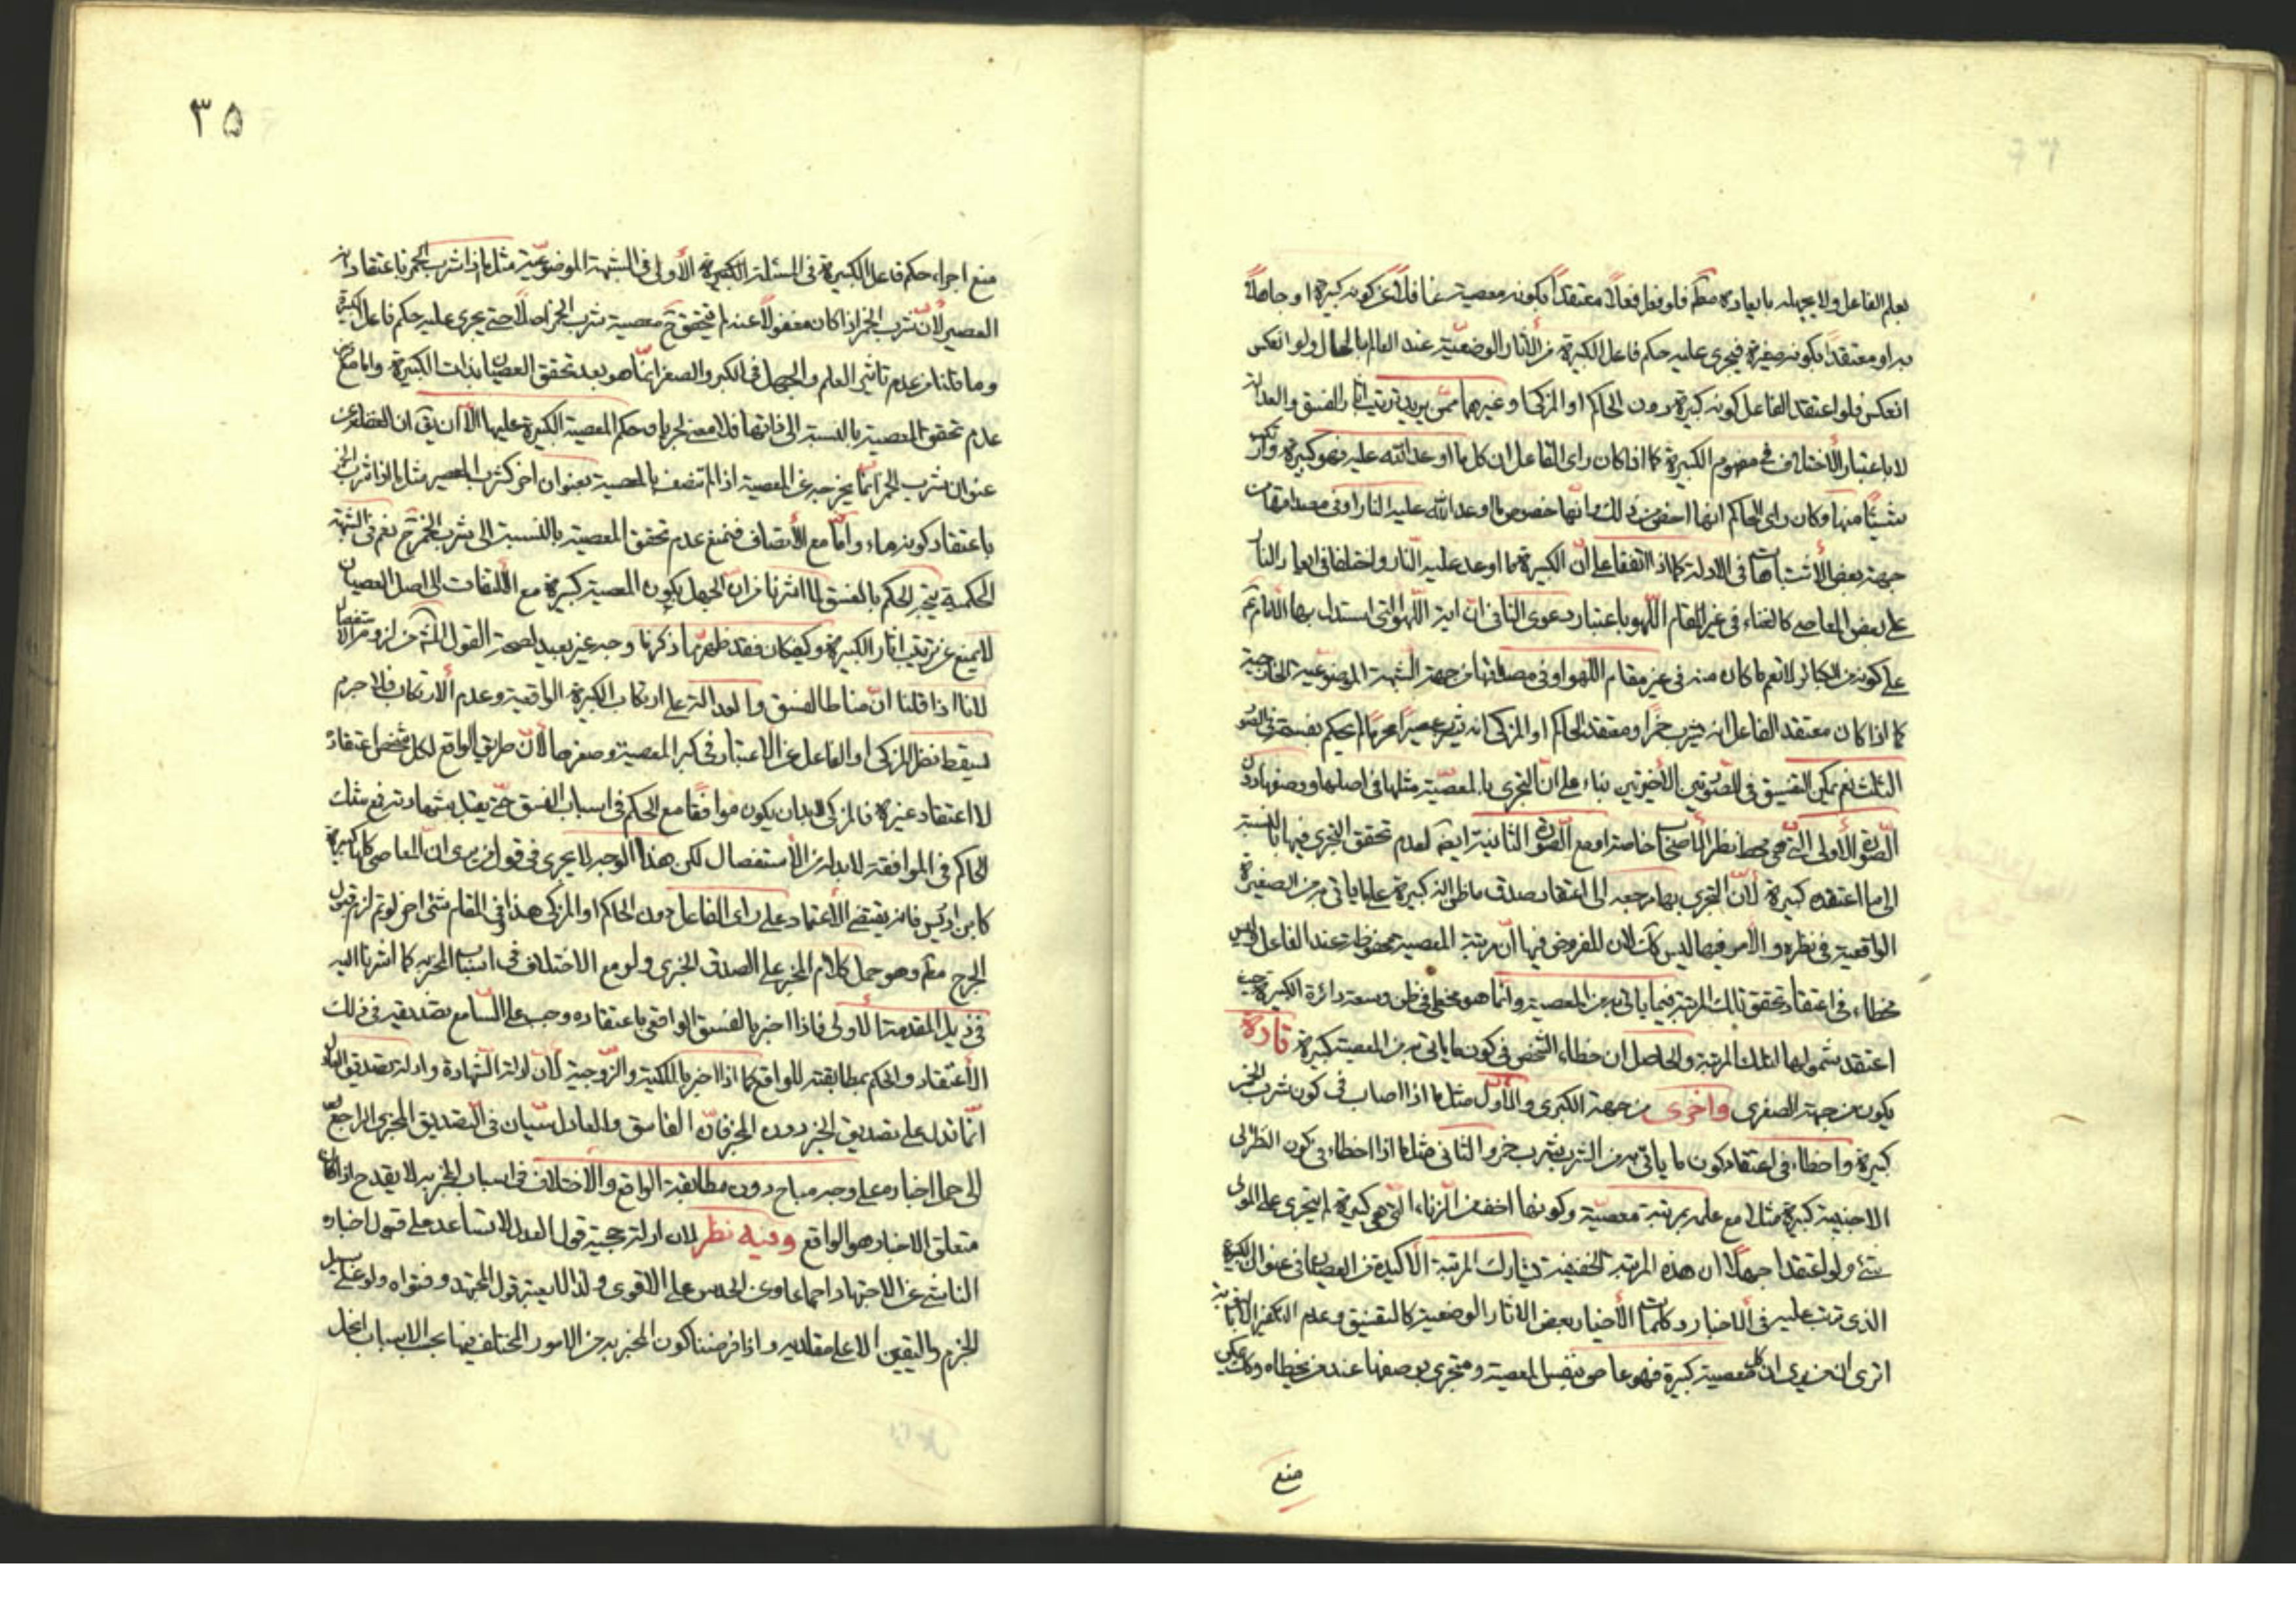 بعلم الفاعل ولا يجهله بايعاده مطم فلو فعل فعلاً معتقداً بكونه معصية غافلاً عن كونه كبيرة او جاهلاً
به او معتقداً بكونه صغيرة فيجرى عليه حكم فاعل الكبيرة من الآثار الوضعيّة عند العالم بالحال ولو انعكس
انعكس فلو اعتقد الفاعل كونه كبيرة دون الحاكم او المزكى او غيرهما ممّن يريد ترتيب آثار الفسق والعدالة
لا باعتبار الأختلاف فى مفهوم الكبيرة كما اذا كان راى الفاعل ان كل ما اوعد الله عليه فهو كبيرة وارتكب
شيئاً منها وكان راى الحاكم انها اخص من ذلك وانّها خصوص ما اوعد الله عليه النار او فى مصداقها من
جهة بعض الأشتباهات فى الادلة كما اذا اتفقا على انّ الكبيرة مما اوعد عليه النّار واختلفا فى ايعاد النار
على بعض المعاصى كالغناء فى غير المقام اللّهو باعتبار دعوى النافى انّ اية اللّهو التى استدل بها الامام عم
على كونه من الكبائر لا تعم ما كان منه فى غير مقام اللّهو او فى مصداقها من جهة الشّبهة الموضوعيّة الخارجية
كما اذا كان معتقد الفاعل انه يشرب خمراً ومعتقد الحاكم او المزكى انه يشرب عصيراً محرّماً لم يحكم بفسقه فى الصور
الثلث نعم يمكن التفسيق فى الصّورتين الأخيرتين بناء على انّ التجرى بالمعصيّة مثلها فى اصلها ووصفها دون
الصّورة الأولى الّتى هى محط نظر الأصحاب خاصة او مع الصّورة الثانية ايضاً لعدم تحقق التجرى فيها بالنسبة
الى ما اعتقده كبيرة لأنّ التجرى بها مرجعه الى اعتقاد صدق ما ظن انه كبيرة على ما ياتى به من الصغيرة
الواقعية فى نظره والأمر فيها ليس كك لان المفروض فيها انّ مرتبة المعصية محفوظة عند الفاعل وليس
خطاءه فى اعتقاد تحقق تلك المرتبة فيما ياتى به من المعصية وانّما هو مخطى فى ظن وسعة دائرة الكبيرة حيث
اعتقد شمولها لتلك المرتبة والحاصل ان خطاء الشخص فى كون ما ياتى به من المعصية كبيرة تارة
يكون من جهة الصغرى واخرى من جهة الكبرى والأوّل مثل ما اذا اصاب فى كون شرب الخمر
كبيرة واخطاء فى اعتقاد كون ما ياتى به من الشرب شرب خمر والثانى مثل ما اذا اخطاء فى كون النظر الى
الاجنبية كبيرة مثلاً مع علمه بمرتبة معصيّة وكونها اخف من الزناء الّتى هى كبيرة لم يتجرى على المولى
بشئ ولو اعتقد اجهلاً ان هذه المرتبة الخفيفة تشارك المرتبة الأكيدة من العصيان فى عنوان الكبيرة
الذى ترتب عليه فى الاخبار وكلمات الأخيار بعض الاثار الوضعية كالتفسيق وعدم التكفير الا بالتوبة
اترى ان من يرى ان كل معصية كبيرة فهو عاص بنفس المعصية ومتجرى بوصفها عند من يخطاه وكك عكس
منع
٣٥
منع اجراء حكم فاعل الكبيرة فى المسئلة الكبيرة الأولى فى الشبهة الموضوعيّة مثل ما اذا شرب الخمر باعتقاد انه
العصير لأنّ شرب الخمر اذا كان مغفولاً عنه لم يتحقق ثمّ معصية شرب الخمر اصلاً حتى يجرى عليه حكم فاعل الكبيرة
وما قلنا من عدم تاثير العلم والجهل فى الكبر والصغر انّما هو بعد تحقق العصيان بذات الكبيرة واما مع فرض
عدم تحقق المعصية بالنسبة الى ذاتها فلا معنى لجريان حكم المعصية الكبيرة عليها الاّ ان يق ان الغفلة عن
عنوان شرب الخمر انّما يخرجه عن المعصية اذا لم تتصف بالمعصية بعنوان اخر كشرب العصير مثل ما اذا شرب الخمر
باعتقاد كونه ماء وامّا مع الأتصاف فنمنع عدم تحقق المعصية بالنسبة الى شرب الخمر ح نعم فى الشبهة
الحكمية يتجه الحكم بالفسق لما اشرنا من انّ الجهل بكون المعصية كبيرة مع الالتفات الى اصل العصيان
لا يمنع عن ترتيب اثار الكبيرة وكيفكان فقد ظهر بما ذكرنا وجه غير بعيد لصحة القول من لزوم الاستفصال
لانا اذا قلنا انّ مناط الفسق والعدالة على ارتكاب الكبيرة الواقعية وعدم الارتكاب فلا جرم
ليسقط نظر المزكى او الفاعل عن الاعتبار فى كبر المعصية وصغرها لأنّ طريق الواقع لكل شخص اعتقاده
لا اعتقاد غيره فالمزكى لابد ان يكون موافقاً مع الحاكم فى اسباب الفسق حتى يقبل شهادته فمع شك
الحاكم فى الموافقة لابد له من الأستفصال لكن هذا الوجه لا يجرى فى قول من يرى انّ المعاصى كلها كبيرة
كابن ادريس فانه يقتضى الأعتماد على راى الفاعل دون الحاكم او المزكى هذا وفى المقام شئ اخر لو تم لزم قبول
الجرح مطم وهو حمل كلام المخبر على الصدق الخبرى ولو مع الاختلاف فى اسباب المخبر به كما اشرنا اليه
فى ذيل المقدمة الأولى فاذا اخبر بالفسق الواقعى باعتقاده وجب على السّامع تصديقه فى ذلك
الأعتقاد والحكم بمطابقته للواقع كما اذا اخبر بالملكية والزّوجية لأنّ ادلة الشّهادة وادلة تصديق العادل
انّما تدل على تصديق الخبر دون المخبر فانّ الفاسق والعادل سيّان فى التّصديق المخبرى الراجع
الى حمل اخباره على وجه مباح دون مطابقية الواقع والأختلاف فى اسباب المخبر به لا يقدح اذا كان
متعلق الاخبار هو الواقع وفيه نظر لان ادلة حجية قول العدل لا تساعد على قبول اخباره
الناشئ عن الاجتهاد اجماعا وعن الحدس على الاقوى ولذا لا يعتبر قول المجتهد وفتواه ولو على سبيل
الجزم واليقين الا على مقلديه واذا فرضنا كون المخبر به من الامور المختلف فيها بحسب الاسباب انحل